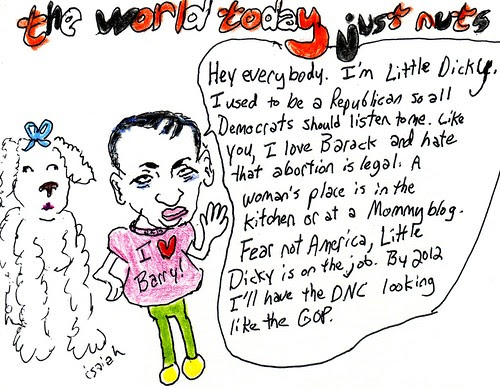 the world today just nuts
Hey everybody. I'm Little Dicky.
I used to be a Republican so all
Democrats should listen to me. Like
you, I love Barack and hate
that abortion is legal. A
woman's place is in the
kitchen or at a Mommy blog.
Fear not America, Little
Dicky is on the job. By 2012
I'll have the DNC looking
like the GOP.
I ♥
Barry!
isaiah